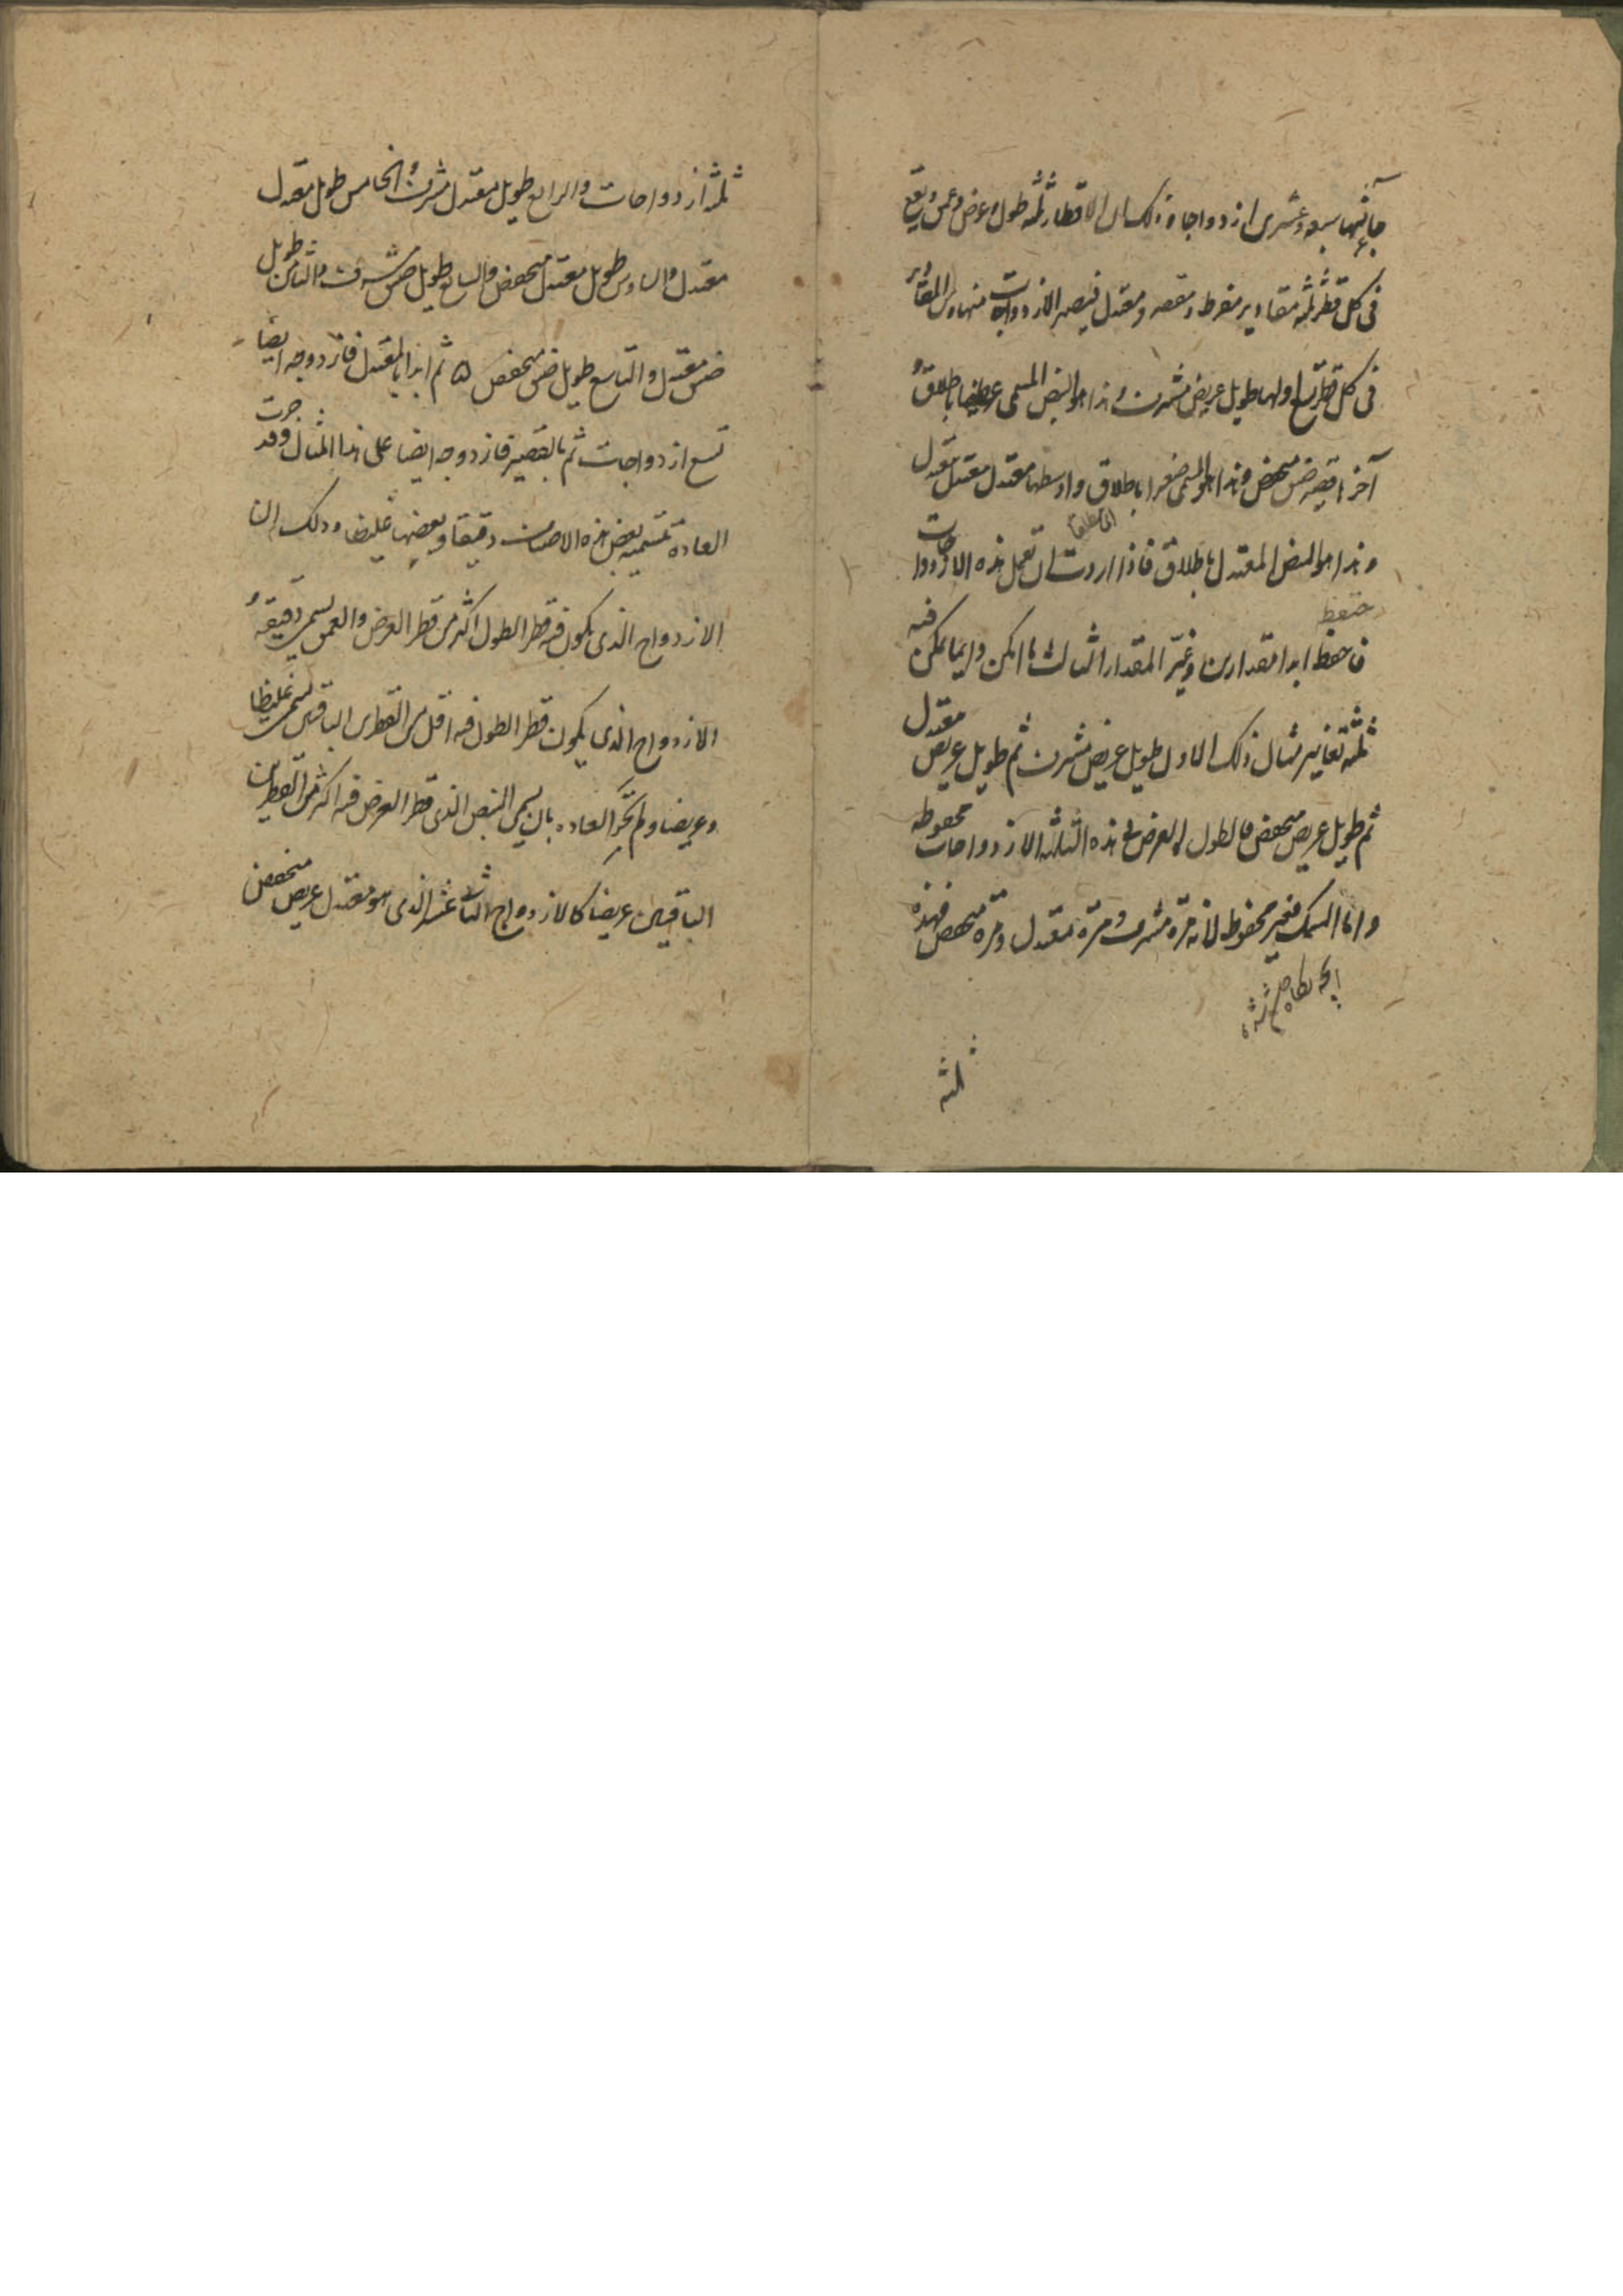 جانبها سبعه وعشرين ازدواجا وذلك ان الاقطار ثلثه طول وعرض وعمق ويقع
فى كل قطر ثلثه مقادير مفرط ومقصر ومعتدل فيصير الازدواجات منها ومن المقادير
فى كل قطر تسع اولها طويل عريض مشرف وهذا هو النبض المسمى عظيما باطلاق
آخرها قصير ضيق منخفض وهذا هو المسمى صغيرا باطلاق واوسطها معتدل معتدل معتدل
وهذا هو النبض المعتدل باطلاق فاذا اردت ان تعمل هذه الازدواجات
فاحفظ ابدا مقدارين وغيّر المقدار الثالث ما امكن وانما يمكن فيه
ثلثه تغايير مثال ذلك الاول طويل عريض مشرف ثم طويل عريض معتدل
ثم طويل عريض منخفض فالطول والعرض فى هذه الثلثه الازدواجات محفوظه
واما السمك فغير محفوظ لانه مرّة مشرف ومرّة معتدل ومرّة منخفض فهذه
ثلثه
ثلثه ازدواجات والرابع طويل معتدل مشرف والخامس طويل معتدل
معتدل والسادس طويل معتدل منخفض والسابع طويل ضيق مشرف والثامن طويل
ضيق معتدل والتاسع طويل ضيق منخفض ه ثم ابدا بالمعتدل فازدوجه ايضا
تسع ازدواجات ثم بالقصير فازدوجه ايضا على هذا المثال وقد جرت
العادة بتسميه بعض هذه الاصناف دقيقا وبعضها غليظا وذلك ان
الازدواج الذى يكون فيه قطر الطول اكثر من قطر العرض والعمق يسمى دقيقه
الازدواج الذى يكون قطر الطول فيه اقل من القطرين الباقيين يسمى غليظا
وعريضا ولم تجر العاده بان يسمى النبض الذى قطر العرض فيه اكثر من القطرين
الباقيين عريضا كالازدواج الثانى عشر الذى هو معتدل عريض منخفض